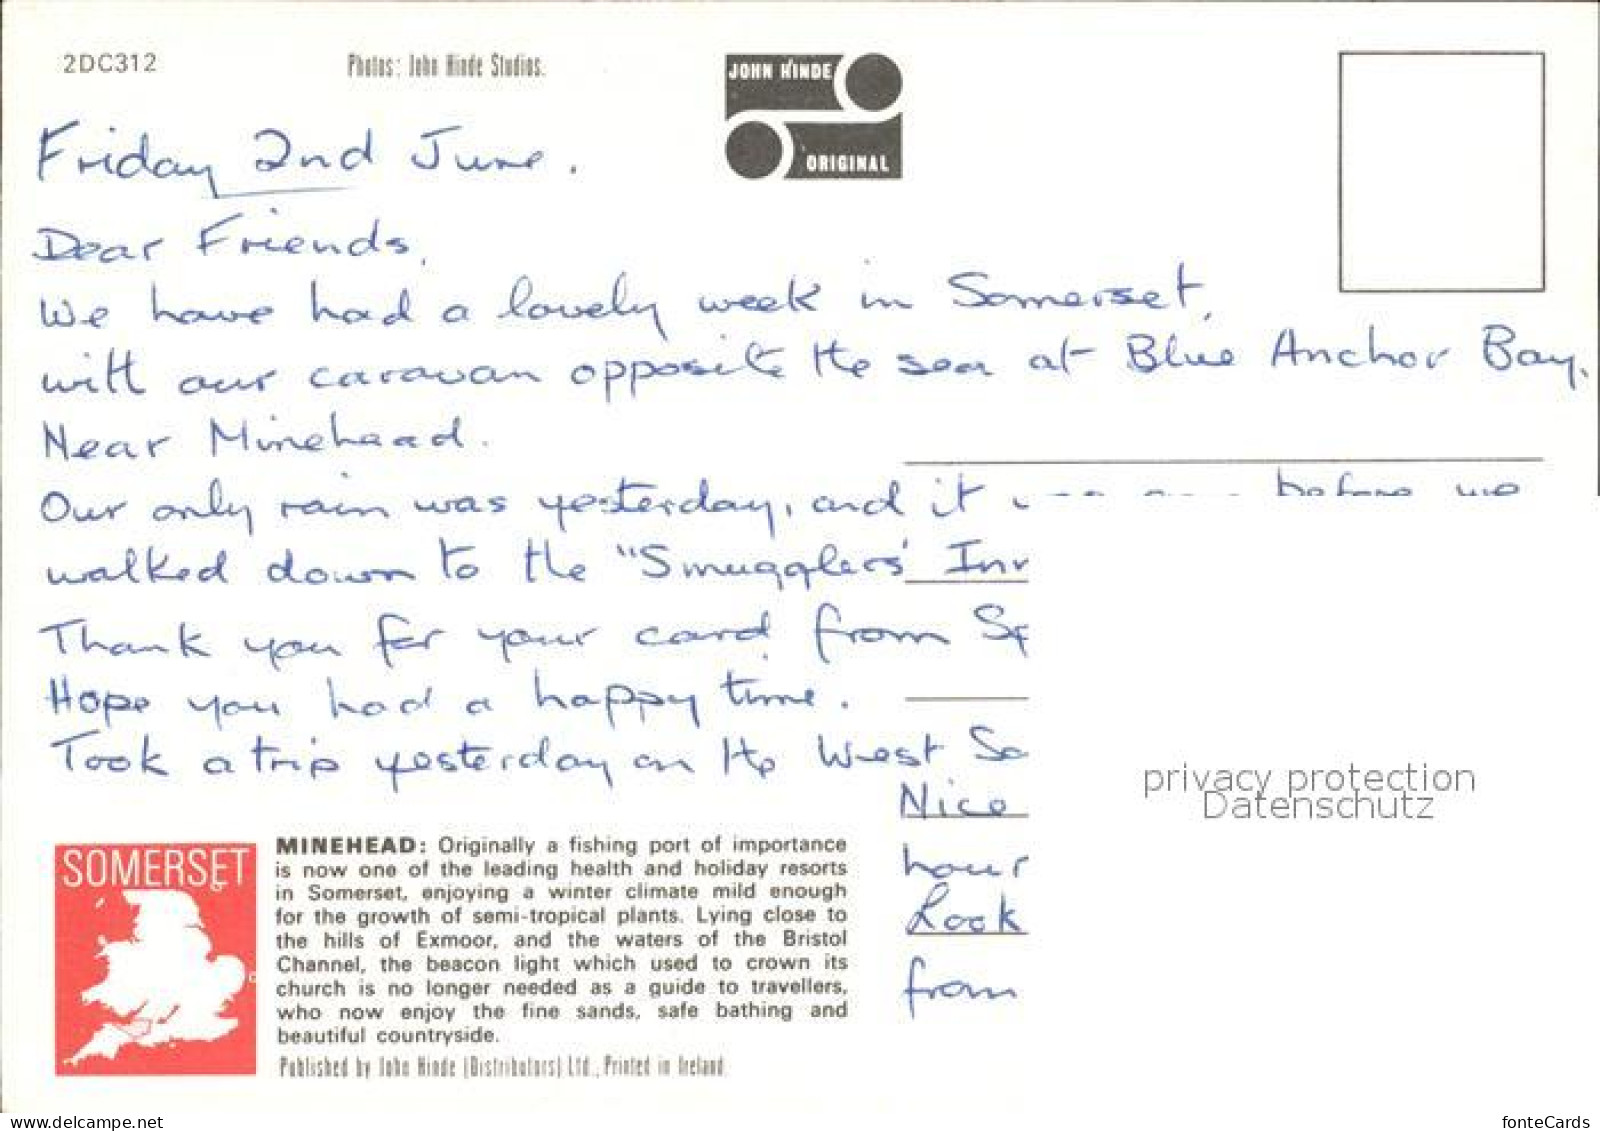 2DC312
Photos: John Hinde Studios.
JOHN HINDE
ORIGINAL
Friday 2nd June.
Dear Friends,
We have had a lovely week in Somerset,
with our caravan opposite the sea at Blue Anchor Bay,
Near Minehead.
Our only rain was yesterday, and it before we
walked down to the "Smugglers' Inn
Thank you for your card from
Hope you had a happy time.
Took a trip yesterday on the West So
Nice
hour
Look
from
privacy protection
Datenschutz
SOMERSET
MINEHEAD: Originally a fishing port of importance
is now one of the leading health and holiday resorts
in Somerset, enjoying a winter climate mild enough
for the growth of semi-tropical plants. Lying close to
the hills of Exmoor, and the waters of the Bristol
Channel, the beacon light which used to crown its
church is no longer needed as a guide to travellers,
who now enjoy the fine sands, safe bathing and
beautiful countryside.
Published by John Hinde (Distributors) Ltd., Printed in Ireland
www.ansichtskarten-center.de
fonteCards